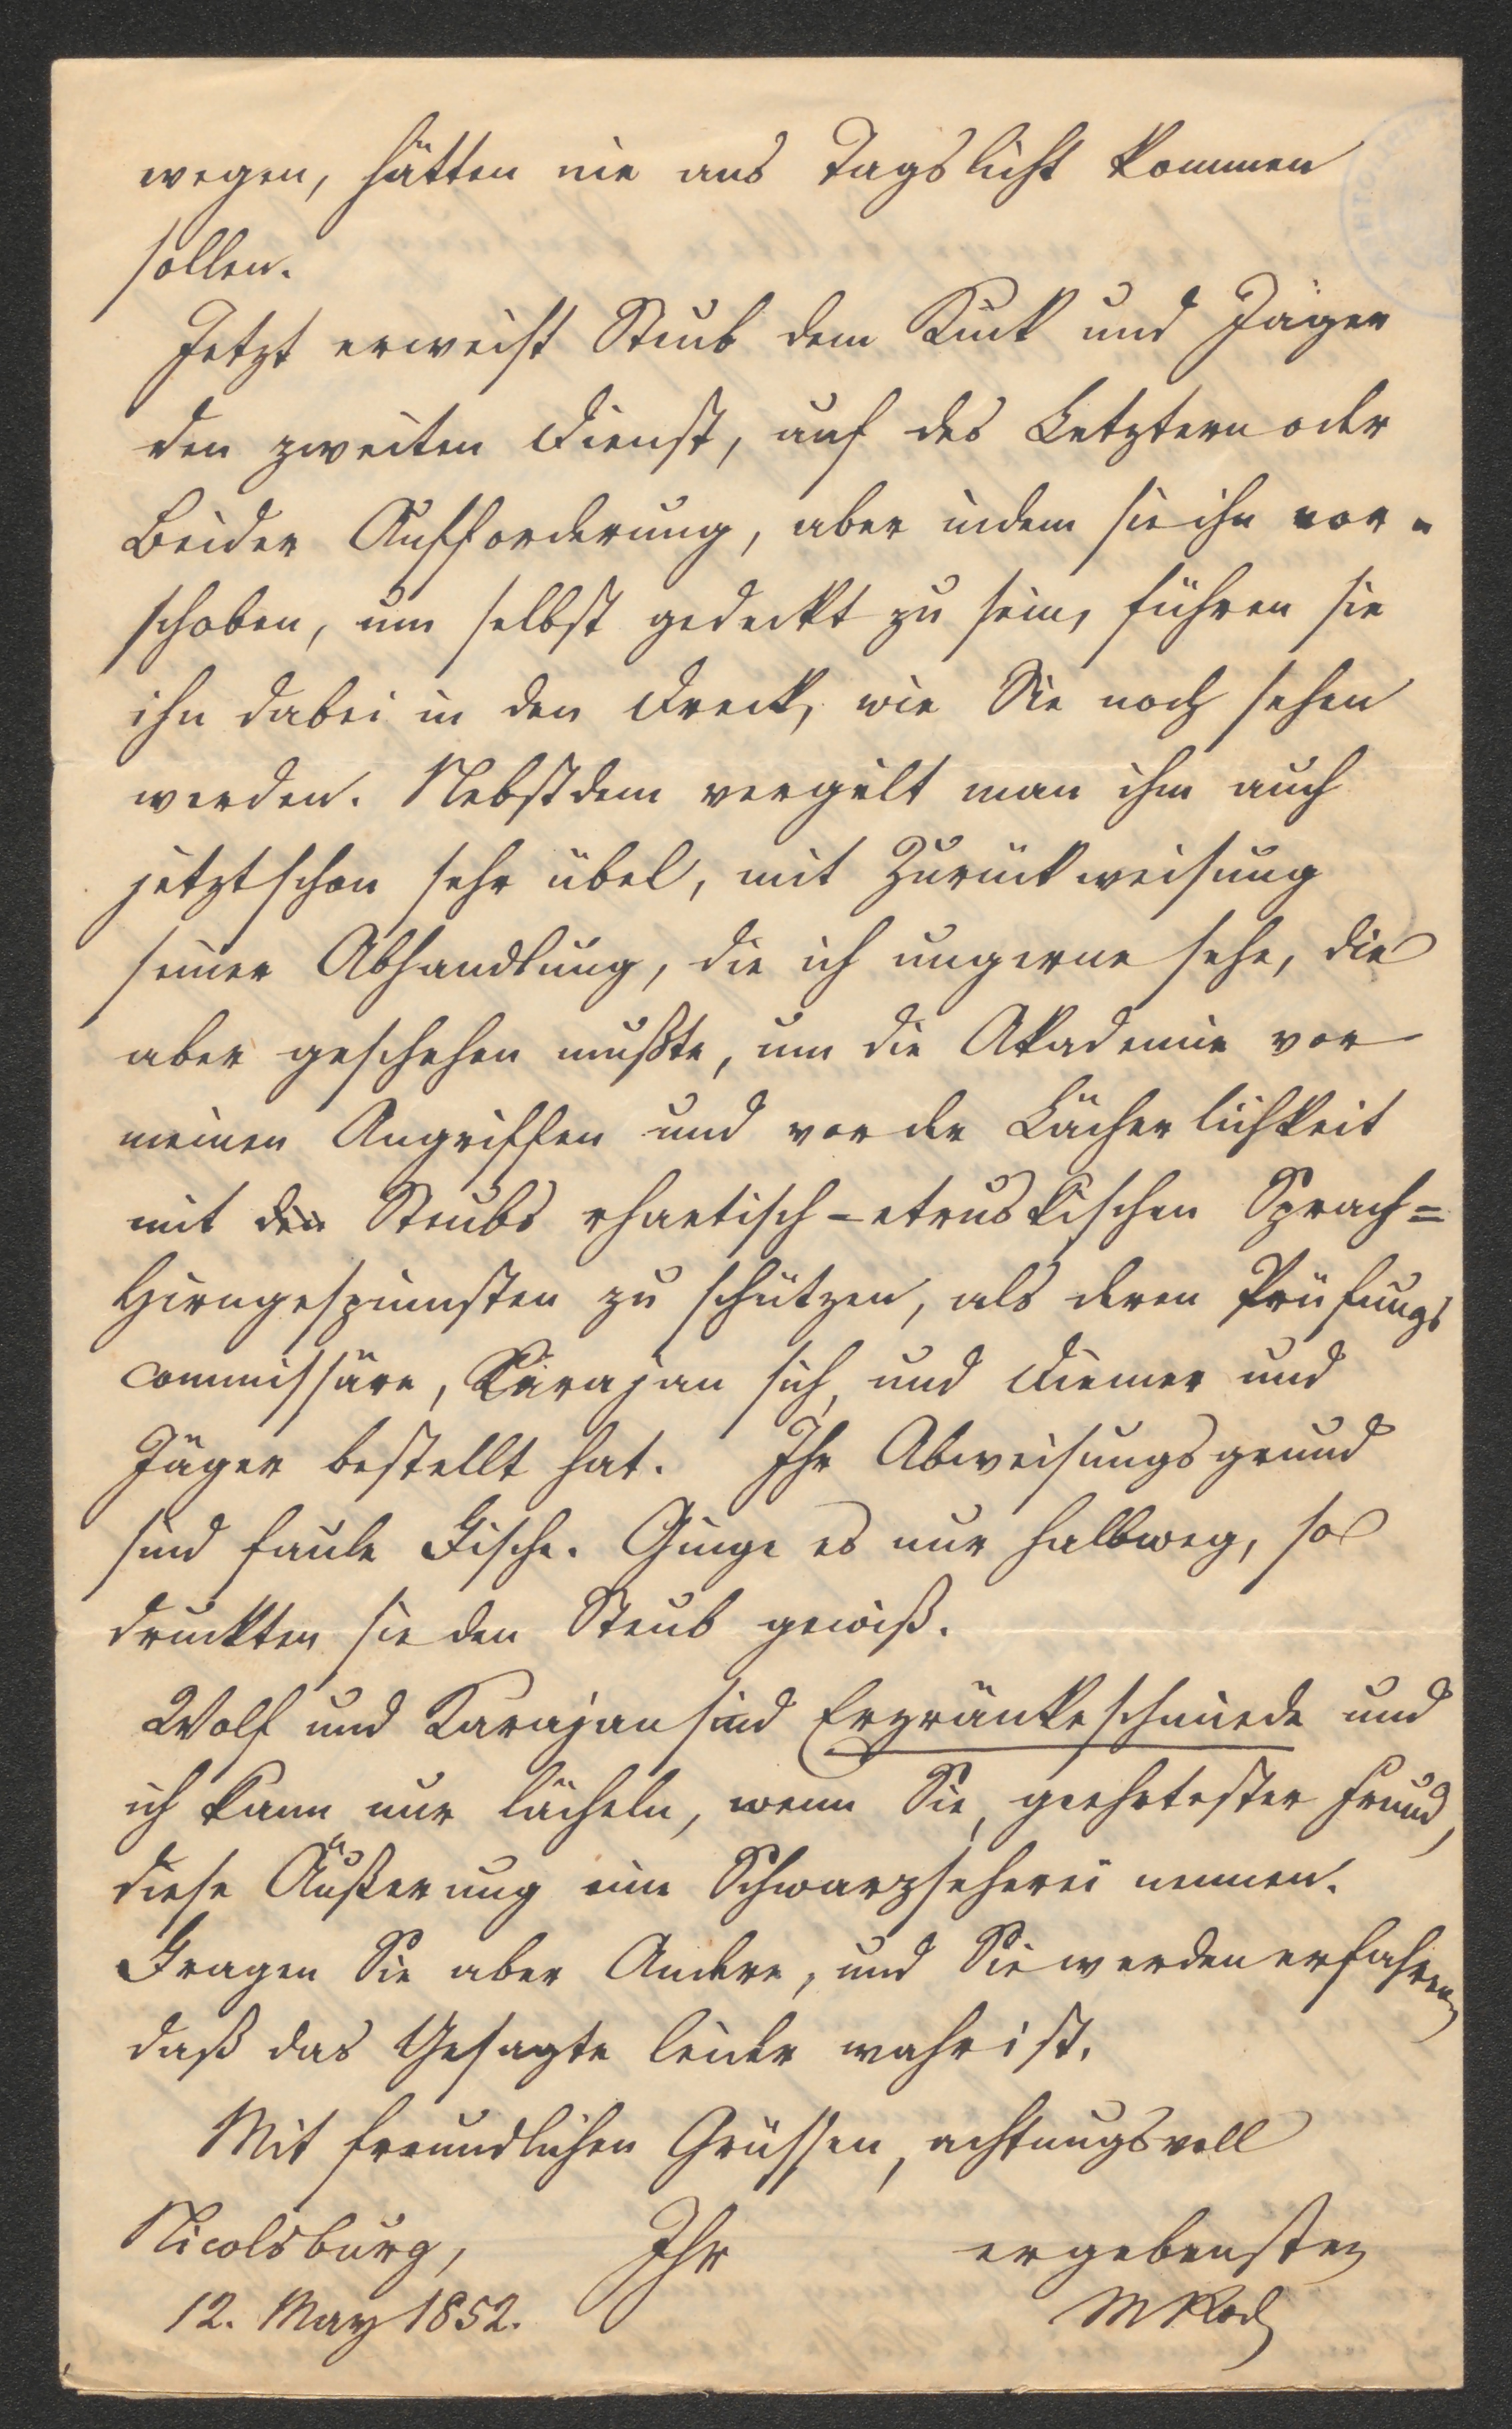 wegen, hätten nie ans Tagslicht kommen
sollen.
Jetzt erweist Steub dem Kink und Jäger
den zweiten Dienst, auf des Letztern oder
Beider Aufforderung, aber indem sie ihn vor-
schoben, um selbst gedeckt zu sein, führen sie
ihn dabei in den Dreck, wie Sie noch sehen
werden. Nebstdem vergilt man ihm auch
jetzt schon sehr übel, mit Zurückweisung
seiner Abhandlung, die ich ungerne sehe, die
aber geschehen mußte, um die Akademie vor
meinen Angriffen und vor der Lächerlichkeit
mit den Steubs rhaetisch-etruskischen Sprach=
Hirngespinnsten zu schützen, als deren Prüfungs
commissäre, Karajan sich, und Diemer und
Jäger bestellt hat. Ihr Abweisungsgrund
sind faule Fische. Ginge es nur halbweg, so
druckten sie den Steub gewiß.
Wolf und Karajan sind Erzränkeschmiede und
ich kann nur lächeln, wenn Sie, geehrtester Freund,
diese Äußerung eine Schwarzseherei nennen.
Fragen Sie aber Andere, und Sie werden erfahren,
daß das Gesagte leider wahr ist.
Mit freundlichen Grüssen, achtungsvoll
Nicolsburg, Ihr ergebenster
12. May 1852. MKoch